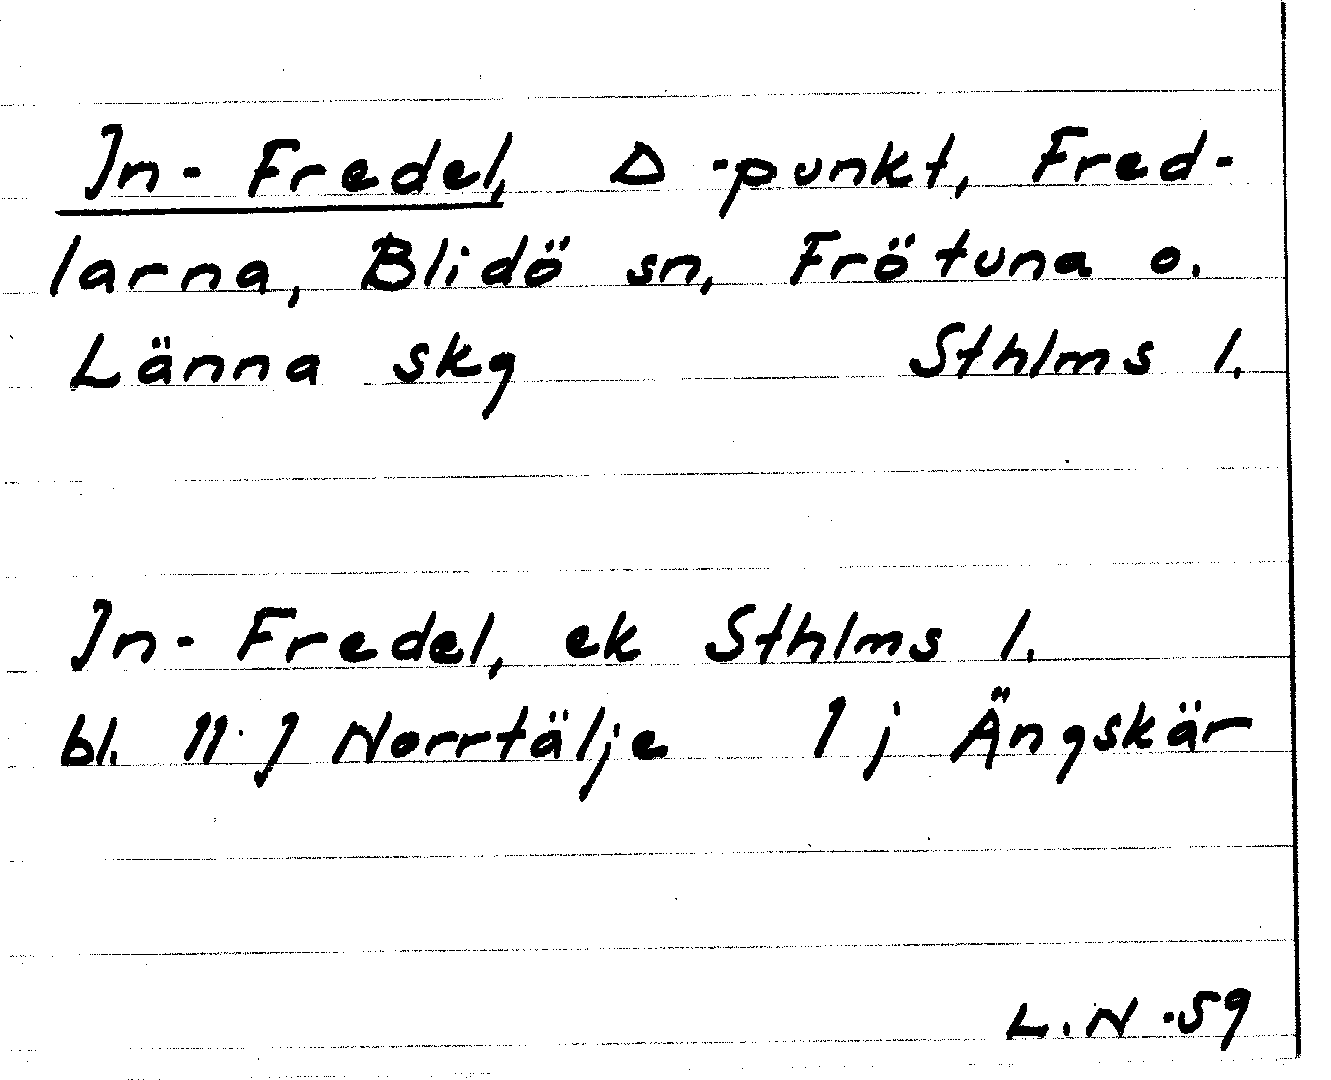 In-Fredel, Δ -punkt, Fred-
larna, Blidö sn, Frötuna o.
Länna skg Sthlms l.
In-Fredel, ek Sthlms l.
bl. 11 I Norrtälje 1 j Ängskär
L.N -59